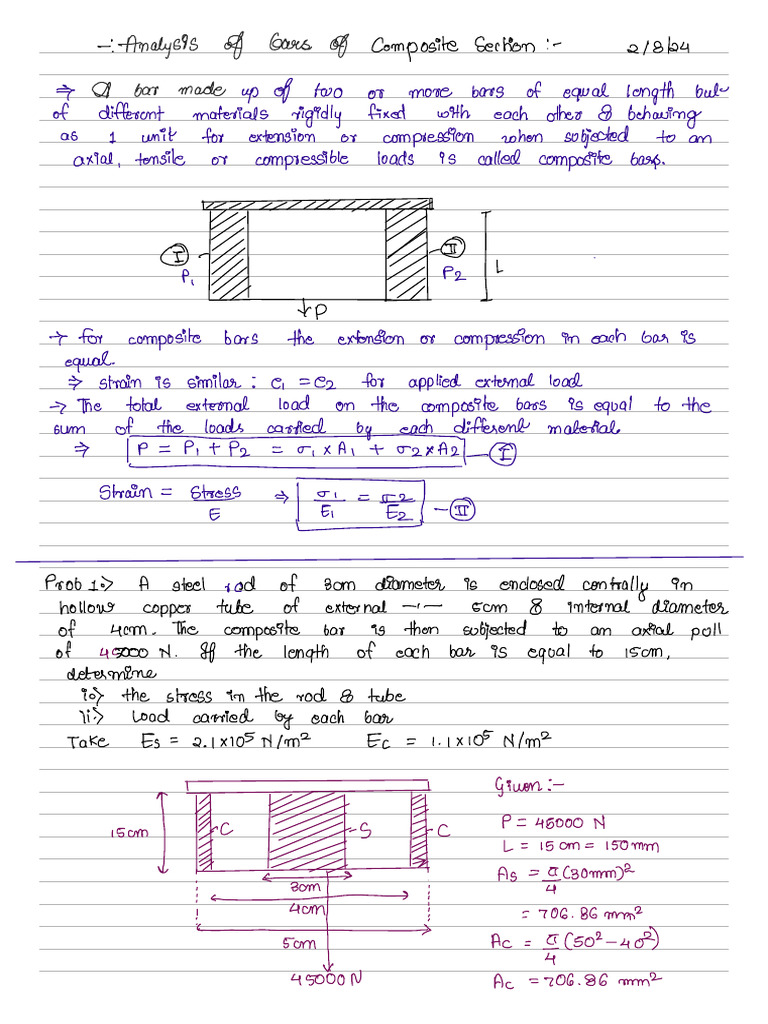 -:- Analysis of bars of Composite Section :- 2/8/24
⇒ A bar made up of two or more bars of equal length but
of different materials rigidly fixed with each other & behaving
as 1 unit for extension or compression when subjected to an
axial, tensile or compressible loads is called composite bars.
I
II
P1
P2
L
P
→ for composite bars the extension or compression in each bar is
equal.
⇒ strain is similar : e1 = e2 for applied external load
→ The total external load on the composite bars is equal to the
sum of the loads carried by each different material
⇒ P = P1 + P2 = σ1 × A1 + σ2 × A2 — I
Strain = Stress/E ⇒ σ1/E1 = σ2/E2 — II
Prob 1:> A steel rod of 3cm diameter is enclosed centrally in
hollow copper tube of external —"— 5cm & internal diameter
of 4cm. The composite bar is then subjected to an axial pull
of 45000 N. If the length of each bar is equal to 15cm,
determine
i:> the stress in the rod & tube
ii:> Load carried by each bar
Take Es = 2.1×10⁵ N/m² Ec = 1.1×10⁵ N/m²
Given :-
15cm
C
S
C
P = 45000 N
L = 15 cm = 150 mm
As = π/4 (30mm)²
3cm
4cm
= 706.86 mm²
5cm
Ac = π/4 (50² - 40²)
45000 N
Ac = 706.86 mm²